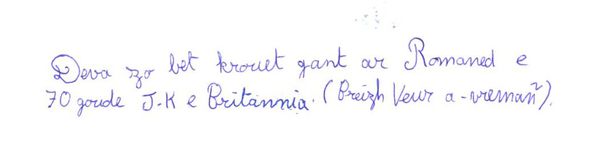 Deva zo bet krouet gant ar Romaned e
70 goude J-K e Britannia. (Breizh Veur a-vremañ).